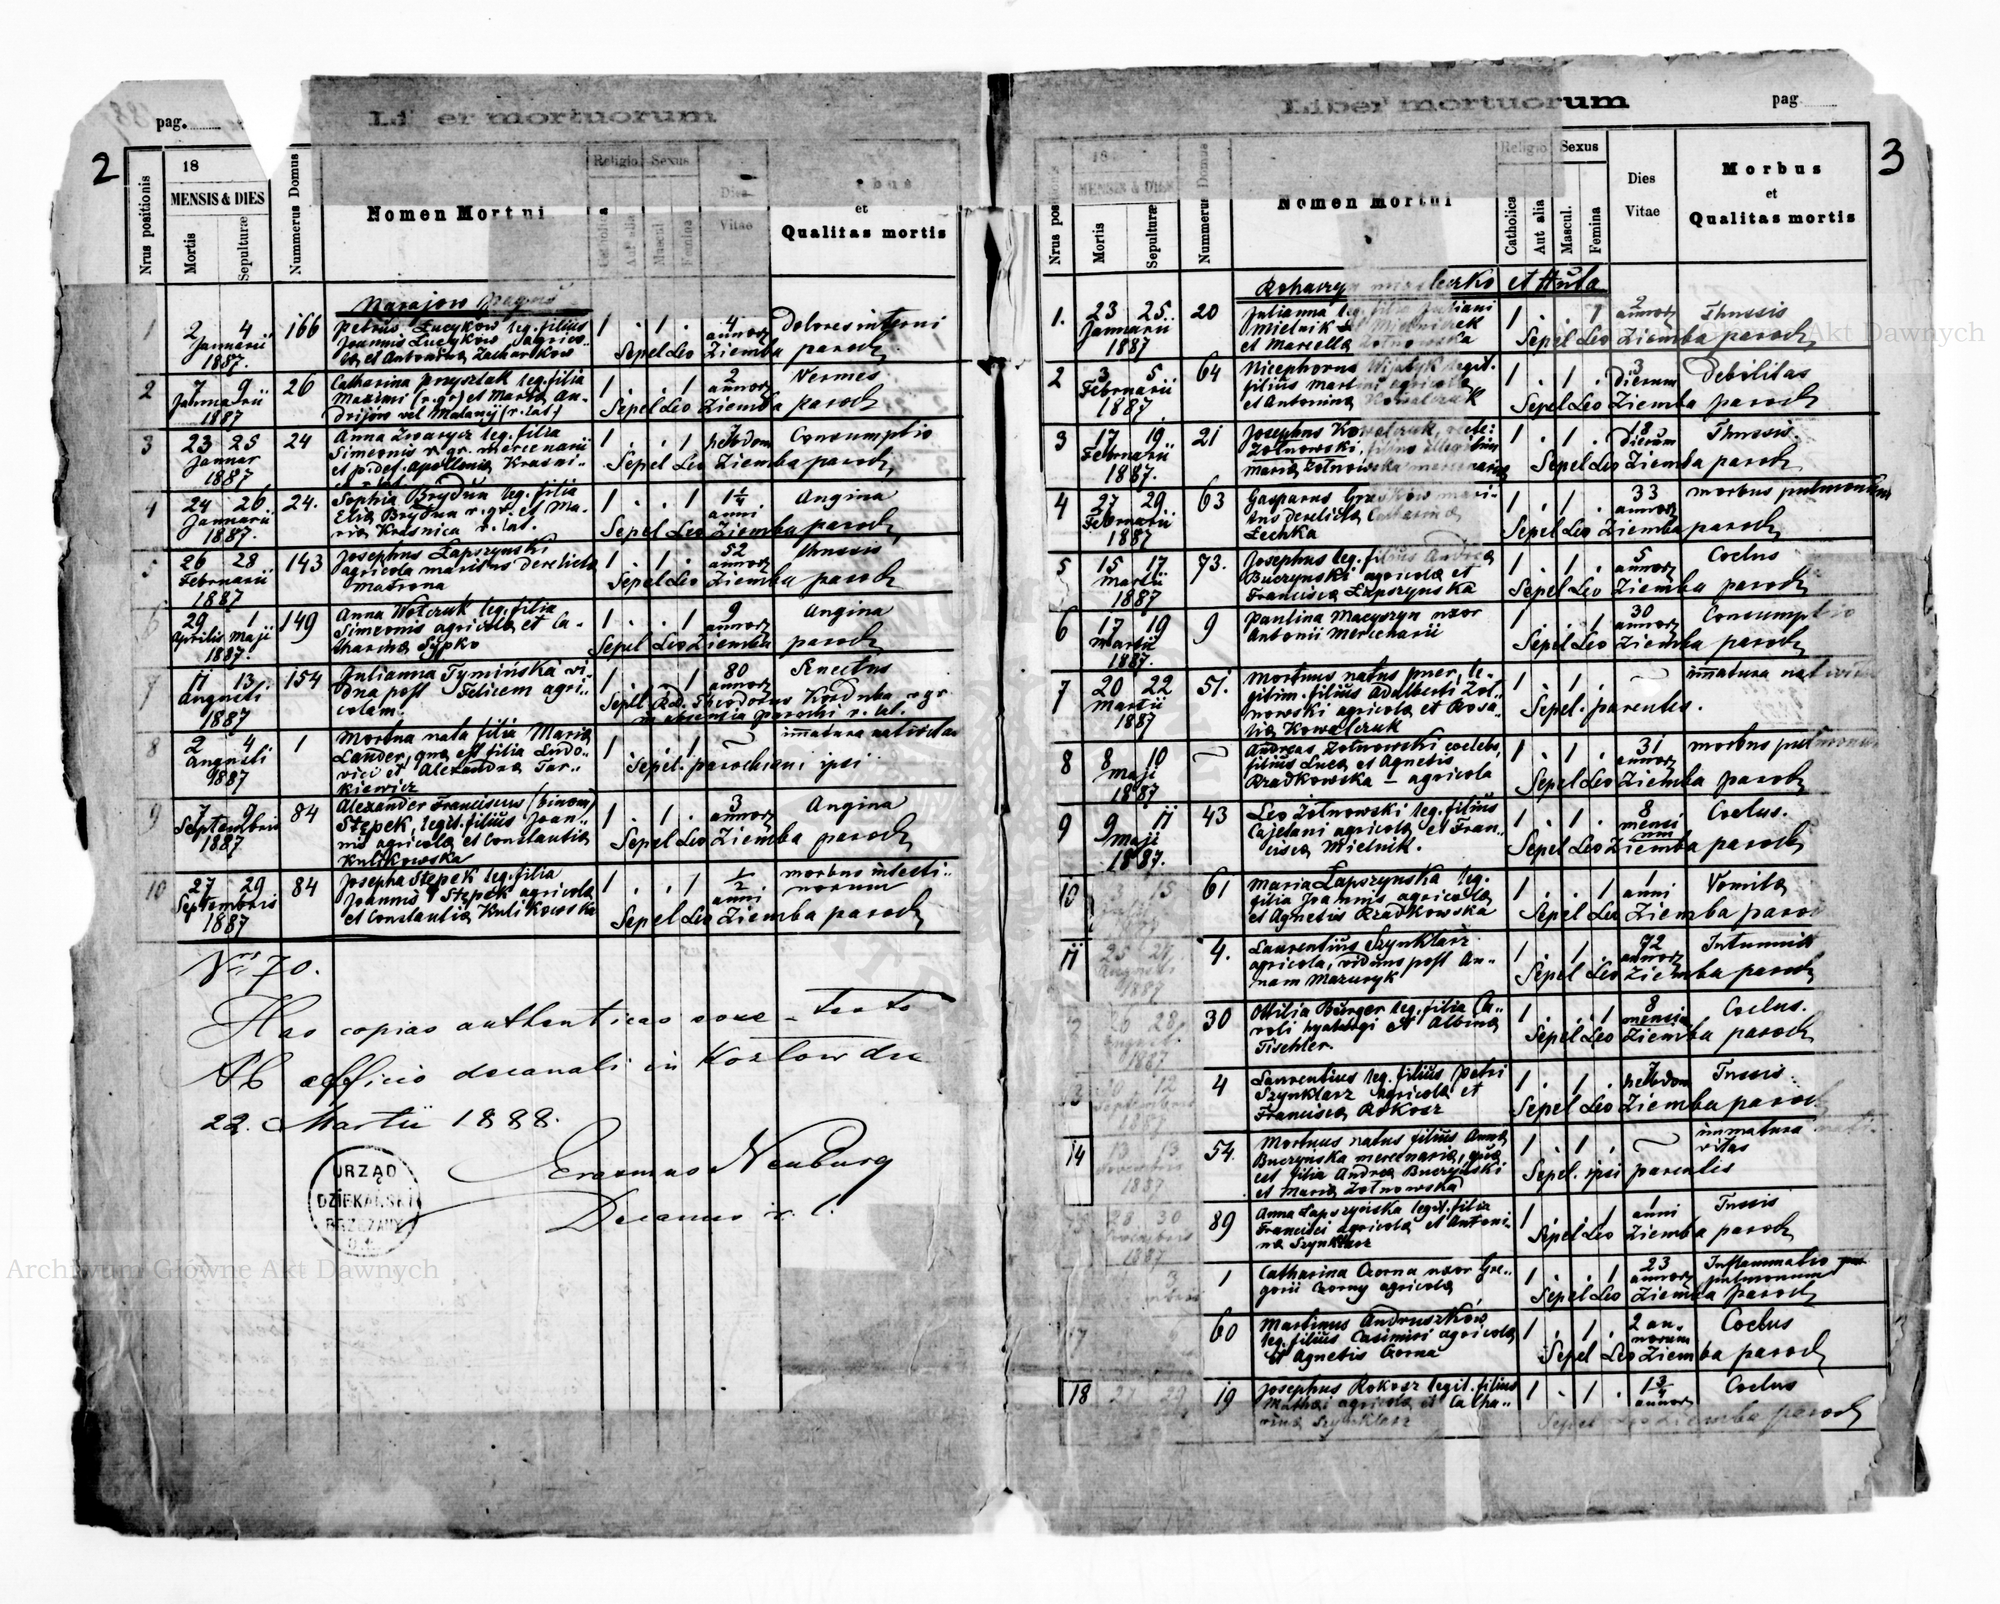 pag.
Liber mortuorum
2
Nrus positionis
18
MENSIS & DIES
Mortis
Sepulturæ
Nummerus Domus
Nomen Mortui
Religio
Sexus
Catholica
Aut alia
Mascul
Femina
Dies
Vitae
et
Qualitas mortis
Narajow pagus
1 2 4 Januarii 1887. 166
Petrus Lucyków leg. filius
Joannis Lucyków agrico-
læ et Antonina Zacharków
1 . 1 . 4 annorz Dolores interni
Sepel Leo Ziemba paroch
2 7 9 Januarii 1887 26
Catharina Przyszlak leg. filia
Maximi (r. gr) et Maria An-
drijów vel Malanij (r. lat.)
1 . . 1 2 annorz Vermes
Sepel Leo Ziemba paroch
3 23 25 Januar 1887 24
Anna Zwarycz leg. filia
Simeonis r. gr. mercenarii
et p. def. Apollonia Krasni-
1 . . 1 hebdom Consumptio
Sepel Leo Ziemba paroch
4 24 26 Januarii 1887. 24.
Sophia Brydun leg. filia
Eliæ Brydun r. gr. et Ma-
ria Krasnica r. lat.
1 . . 1 1/4 anni Angina
Sepel Leo Ziemba paroch
5 26 28 Februarii 1887 143
Josephus Łapszynski
agricola maritus derelicta
Matrona
1 . 1 . 52 annorz
Sepel Leo Ziemba paroch
6 29 1 Aprilis Maji 1887. 149
Anna Wołczuk leg. filia
Simeonis agricolæ et Ca-
tharina Sypko
1 . . 1 9 annorz Angina
Sepel Leo Ziemba paroch
7 11 13 Augusti 1887 154
Julianna Tymińska vi-
dua post Felicem agri-
colam
1 . . 1 80 annorz Senectus
Sepel. Rd. Theodorus Korduba r. gr
in absentia parochi r. lat.
8 2 4 Augusti 1887 1
Mortua nata filia Maria
Lander, quæ est filia Ludo-
vici et Alexandra Tar-
kiewicz
1 . . 1 immatura nativitas
Sepel. parochiani ipsi
9 7 9 Septembris 1887 84
Alexander Franciscus (binom)
Stępek, legit. filius Joan-
nis agricola et Constantia
Kulikowska
1 . 1 . 3 annorz Angina
Sepel Leo Ziemba paroch
10 27 29 Septembris 1887 84
Josepha Stępek leg. filia
Joannis Stępek agricola
et Constantia Kulikowska
1 . . 1 1/2 anni morbus intesti-
norum
Sepel Leo Ziemba paroch
Nrs 70.
Has copias authenticas esse testo
Ab officio decanali in Kozlow die
22. Martii 1888.
Erasmus Neuburg
Decanus r. l.
URZĄD
DZIEKAŃSKI
BRZEŻANY
Archiwum Główne Akt Dawnych
Liber mortuorum
pag
3
Nrus positionis
18
MENSIS & DIES
Mortis
Sepulturæ
Nummerus Domus
Nomen Mortui
Religio
Sexus
Catholica
Aut alia
Mascul.
Femina
Dies
Vitae
Morbus
et
Qualitas mortis
Rohaczyn miasteczko et Huta
1. 23 25. Januarii 1887 20
Julianna leg. filia Juliani
Mielnik
et Marcella Żołnowska
1 . . 1 2 annorz Thussis
Sepel Leo Ziemba paroch
Archiwum Główne Akt Dawnych
2 3 5 Februarii 1887 64
Nicephorus legit.
filius Martini agricola
et Antonina Kowalczuk
1 . 1 . 3 dierum Debilitas
Sepel Leo Ziemba paroch
3 17 19 Februarii 1887. 21
Josephus Kowalczuk, recte:
Żołnowski, filius illegitim
Maria Żołnowska mercenaria
1 . 1 . 18 dierum Thussis.
Sepel Leo Ziemba paroch
4 27 29 Februarii 1887 63
Gasparus mari-
tus derelicta Catharina
Lechka
1 . 1 . 33 annorz morbus pulmonum
Sepel Leo Ziemba paroch
5 15 17 Martii 1887 73.
Josephus leg. filius Andrea
Buczynski agricola et
Francisca Łapszynska
1 . 1 . 5 annorz Coelus
Sepel Leo Ziemba paroch
6 17 19 Martii 1887. 9
Paulina Macyszyn uxor
Antonii Mercenarii
1 . . 1 30 annorz Consumptio
Sepel Leo Ziemba paroch
7 20 22 Martii 1887 51.
Mortuus natus puer, le-
gitim. filius Adalberti Żoł-
nowski agricola et Rosa-
lia Kowalczuk
1 . 1 . immatura nativitas
Sepel. parentes.
8 8 10 Maji 1887
Andreas Żołnowski coelebs,
filius Luca et Agnetis
Rzadkowska – agricola
1 . 1 . 31 annorz morbus pulmonum
Sepel Leo Ziemba paroch
9 9 11 Maji 1887. 43
Leo Żołnowski leg. filius
Cajetani agricola et Fran-
cisca Mielnik.
1 . 1 . 8 mensi
um Coelus.
Sepel Leo Ziemba paroch
10 15 61
Maria Łapszynska leg.
filia Joannis agricola
et Agnetis Rzadkowska
1 . . 1 1 anni Vomita
Sepel Leo Ziemba paroch
11 25 27 Augusti 1887 4.
Laurentius Szynklarz
agricola, viduus post An-
nam Mazuryk
1 . 1 . 72 annorz
Sepel Leo Ziemba paroch
12 26 28 Augusti 1887 30
Ottilia Bürger leg. filia Ca-
roli et Albina
Tischler.
1 . . 1 8 mensiu Coelus.
Sepel Leo Ziemba paroch
13 10 12 Septembris 1887 4
Laurentius leg. filius Petri
Szynklarz agricola et
Francisca Rokosz
1 . 1 . 7 hebdom Tussis.
Sepel Leo Ziemba paroch
14 13 13 1887 54.
Mortuus natus filius Anna
Buczynska mercenaria, quæ
est filia Andrea Buczynski
et Maria Żołnowska
1 . 1 . immatura nati-
vitas
Sepel. ipsi parentes
15 28 30 1887 89
Anna Łapszyńska legit. filia
Francisci agricola et Antoni-
na Szynklarz
1 . . 1 1 anni Tussis
Sepel Leo Ziemba paroch
1
Catharina Czorna uxor Gre-
gorii Czorny agricola
1 . . 1 23 annorz Inflammatio
pulmonum
Sepel Leo Ziemba paroch
17 60
Martinus Andruszków
leg. filius Casimiri agricola
et Agnetis Czorna
1 . 1 . 2 an-
norum Coelus
Sepel Leo Ziemba paroch
18 27 29 19
Josephus Rokosz legit. filius
Mathæi agricola et Catha-
rina Szynklarz
1 . 1 . 1 3/4 annorz Coelus
Sepel Leo Ziemba paroch